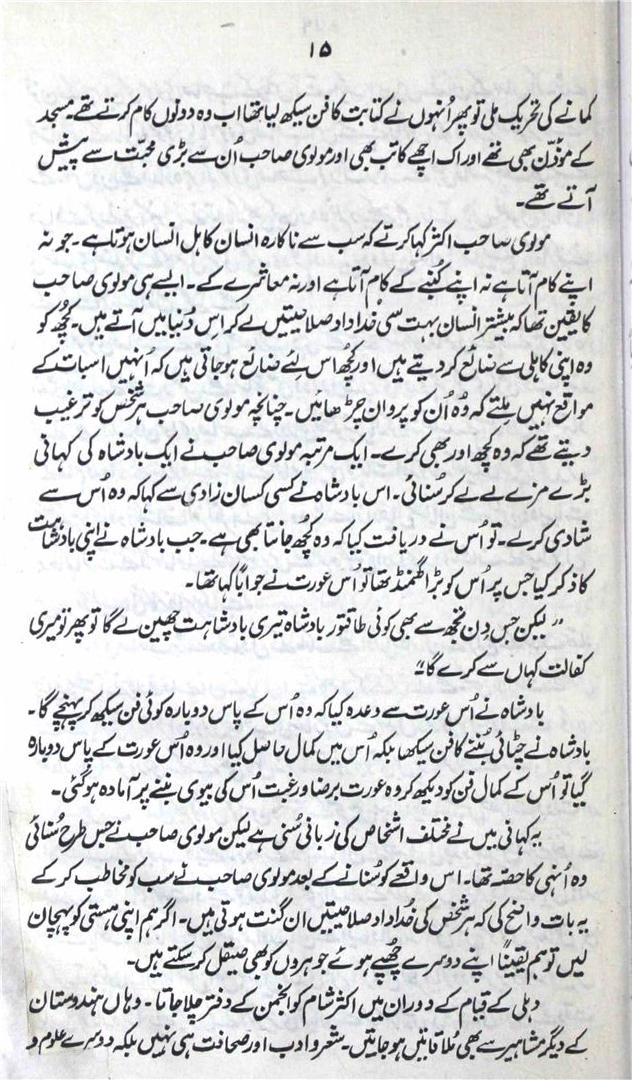 ۱۵
کمانے کی تحریک ملی تو پھر اُنہوں نے کتابت کا فن سیکھ لیا تھا اب وہ دونوں کام کرتے تھے۔ مسجد
کے موذّن بھی تھے اور اک اچھے کاتب بھی اور مولوی صاحب اُن سے بڑی محبت سے پیش
آتے تھے۔
مولوی صاحب اکثر کہا کرتے کہ سب سے ناکارہ انسان کاہل انسان ہوتا ہے۔ جو نہ
اپنے کام آتا ہے نہ اپنے کُنبے کے کام آتا ہے اور نہ معاشرے کے۔ ایسے ہی مولوی صاحب
کا یقین تھا کہ بیشتر انسان بہت سی خُداداد صلاحیتیں لے کر اِس دُنیا میں آتے ہیں۔ کچُھ کو
وہ اپنی کاہلی سے ضائع کر دیتے ہیں اور کچُھ اس لئے ضائع ہو جاتی ہیں کہ اُنہیں اس بات کے
مواقع نہیں مِلتے کہ وُہ اُن کو پروان چڑھائیں۔ چنانچہ مولوی صاحب ہر شخص کو ترغیب
دیتے تھے کہ وہ کچھ اور بھی کرے۔ ایک مرتبہ مولوی صاحب نے ایک بادشاہ کی کہانی
بڑے مزے لے لے کر سُنائی۔ اس بادشاہ نے کسی کسان زادی سے کہا کہ وہ اُس سے
شادی کرے۔ تو اُس نے دریافت کیا کہ وہ کچُھ جانتا بھی ہے۔ جب بادشاہ نے اپنی بادشاہت
کا ذکر کیا جس پر اُس کو بڑا گھمنڈ تھا تو اس عورت نے جواباً کہا تھا۔
”لیکن جس دِن تجُھ سے بھی کوئی طاقتور بادشاہ تیری بادشاہت چھین لے گا تو پھر تو میری
کفالت کہاں سے کرے گا“
بادشاہ نے اُس عورت سے وعدہ کیا کہ وہ اس کے پاس دوبارہ کوئی فن سیکھ کر پہنچے گا۔
بادشاہ نے چٹائی بُننے کا فن سیکھا بلکہ اُس میں کمال حاصل کیا اور وہ اُس عورت کے پاس دوبارہ
گیا تو اُس کے کمال فن کو دیکھ کر وہ عورت برضا و رغبت اُس کی بیوی بننے پر آمادہ ہو گئی۔
یہ کہانی میں نے مختلف اشخاص کی زبانی سُنی ہے لیکن مولوی صاحب نے جس طرح سُنائی
وہ اُنہی کا حصّہ تھا۔ اس واقعے کو سُنانے کے بعد مولوی صاحب نے سب کو مخاطب کر کے
یہ بات واضح کی کہ ہر شخص کی خُداداد صلاحیتیں ان گنت ہوتی ہیں۔ اگر ہم اپنی ہستی کو پہچان
لیں تو ہم یقیناً اپنے دوسرے چھُپے ہوئے جوہروں کو بھی صیقل کر سکتے ہیں۔
دہلی کے قیام کے دوران میں اکثر شام کو انجمن کے دفتر چلا جاتا۔ وہاں ہندوستان
کے دیگر مشاہیر سے بھی مُلاقاتیں ہو جاتیں۔ شعر و ادب اور صحافت ہی نہیں بلکہ دوسرے علوم و